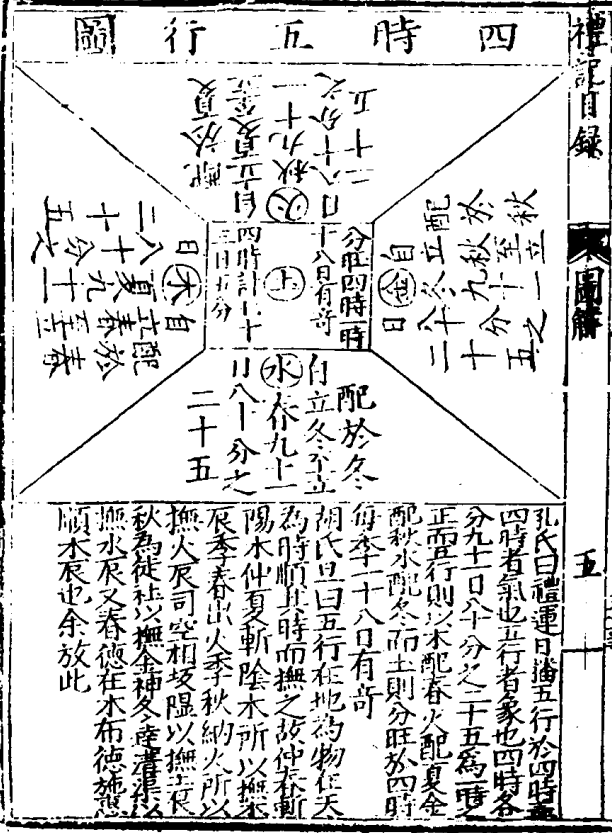 禮記目錄
圖解
五十
四時五行圖
配於夏
自立夏至立
火
秋九十一
日八十分之
二十五
配於秋
自立秋至立
金
冬九十一
日八十分之
二十五
分旺四時一時
十八日有奇
土
四時計七十
三日五分
配於春
自立春至立
木
夏九十一
日八十分之
二十五
配於冬
自立冬至立
水
春九十一
日八十分之
二十五
孔氏曰禮運曰播五行於四時
四時者氣也五行者象也四時各
分九十一日八十分之二十五爲一時之
正而五行則以木配春火配夏金
配秋水配冬而土則分旺於四時
每季一十八日有奇
胡氏旦曰五行在地為物在天
為時順其時而撫之故仲冬斬
陽木仲夏斬陰木所以撫木
辰季春出火季秋納火所以
撫火辰司空相坂隰以撫土辰
秋為徒杜以撫金神冬達溝渠以
撫水辰又春德在木布德施惠
順木辰也余放此